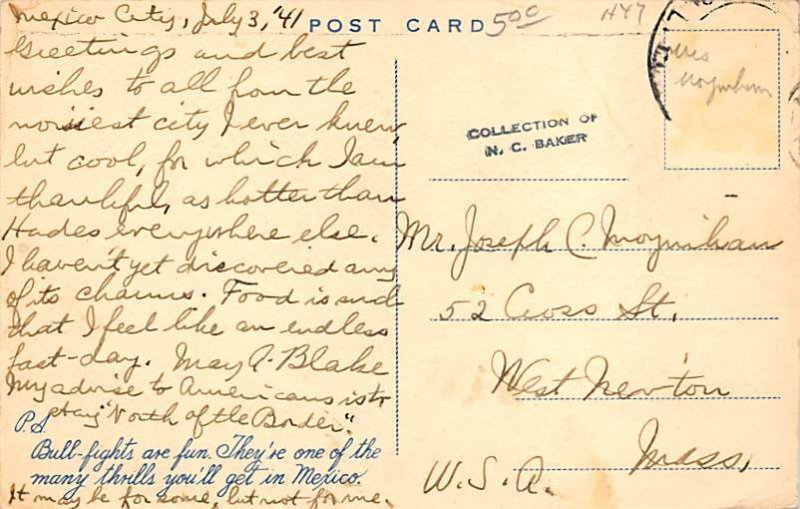 Mexico City, July 3, '41
POST CARD
500
Greetings and best
wishes to all from the
noisiest city I ever knew,
but cool, for which I am
thankful, as hotter than
Hades everywhere else.
I haven't yet discovered any
of its charms. Food is such
that I feel like an endless
fast-day. May A. Blake
My advise to Americans is to
stay "North of the Border".
P.S.
Bull-fights are fun. They're one of the
many thrills you'll get in Mexico.
It may be for some, but not for me.
COLLECTION OF
N. C. BAKER
Moynihan
Mr. Joseph C. Moynihan
52 Cross St.
West Newton
Mass,
U.S.A.